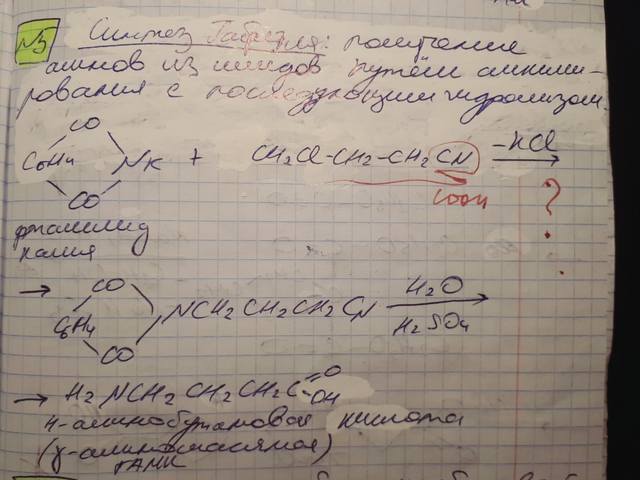 №3 Синтез Габриэля: получение
аминов из имидов путём алкили-
рования с последующим гидролизом.
CO
C6H4 NK + CH2Cl-CH2-CH2CN -KCl
CO COOH ?
фталимид
калия
→ CO
C6H4 NCH2CH2CH2CN H2O
CO H2SO4
→ H2NCH2CH2CH2C=O
OH
4-аминобутановая кислота
(γ-аминомасляная)
ГАМК